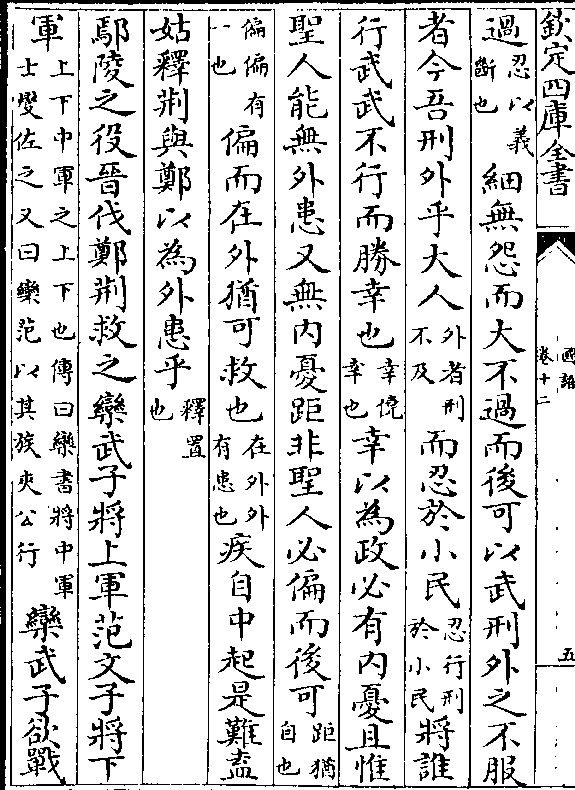 欽定四庫全書
國語
卷十二
五
過忍以義斷也細無怨而大不過而後可以武刑外之不服
者今吾刑外乎大人外者刑不及而忍於小民忍行刑於小民將誰
行武武不行而勝幸也幸僥幸也幸以為政必有内憂且惟
聖人能無外患又無内憂距非聖人必偏而後可距猶自也
偏偏有一也偏而在外猶可救也在外外有患也疾自中起是難盍
姑釋荆與鄭以為外患乎釋置也
鄢陵之役晉伐鄭荆救之欒武子將上軍范文子將下
軍上下中軍之上下也傳曰欒書將中軍士燮佐之又曰欒范以其族夾公行欒武子欲戰